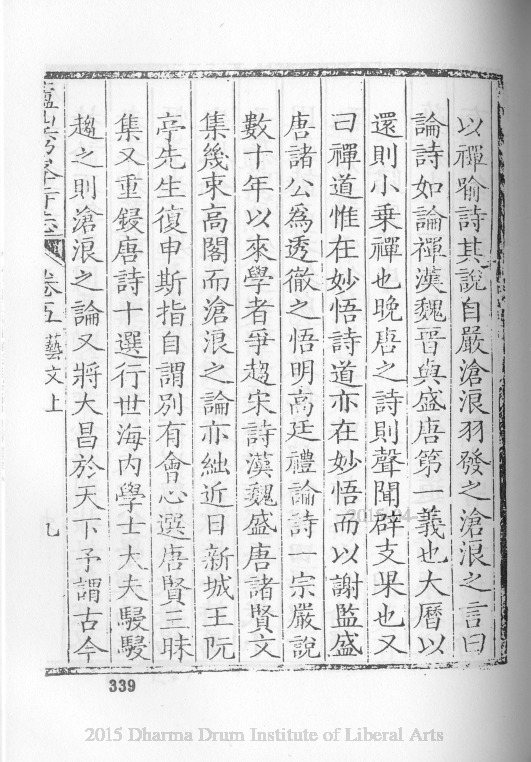 以禪喻詩其說自嚴滄浪羽發之滄浪之言曰
論詩如論禪漢魏晉與盛唐第一義也大曆以
還則小乘禪也晚唐之詩則聲聞辟支果也又
曰禪道惟在妙悟詩道亦在妙悟而以謝監盛
唐諸公為透徹之悟明高廷禮論詩一宗嚴說
數十年以來學者爭趨宋詩漢魏盛唐諸賢文
集幾束高閣而滄浪之論亦絀近日新城王阮
亭先生復申斯指自謂別有會心選唐賢三昧
集又重鋟唐詩十選行世海內學士大夫駸駸
趨之則滄浪之論又將大昌於天下予謂古今
卷五 藝文上
339
2015 Dharma Drum Institute of Liberal Arts